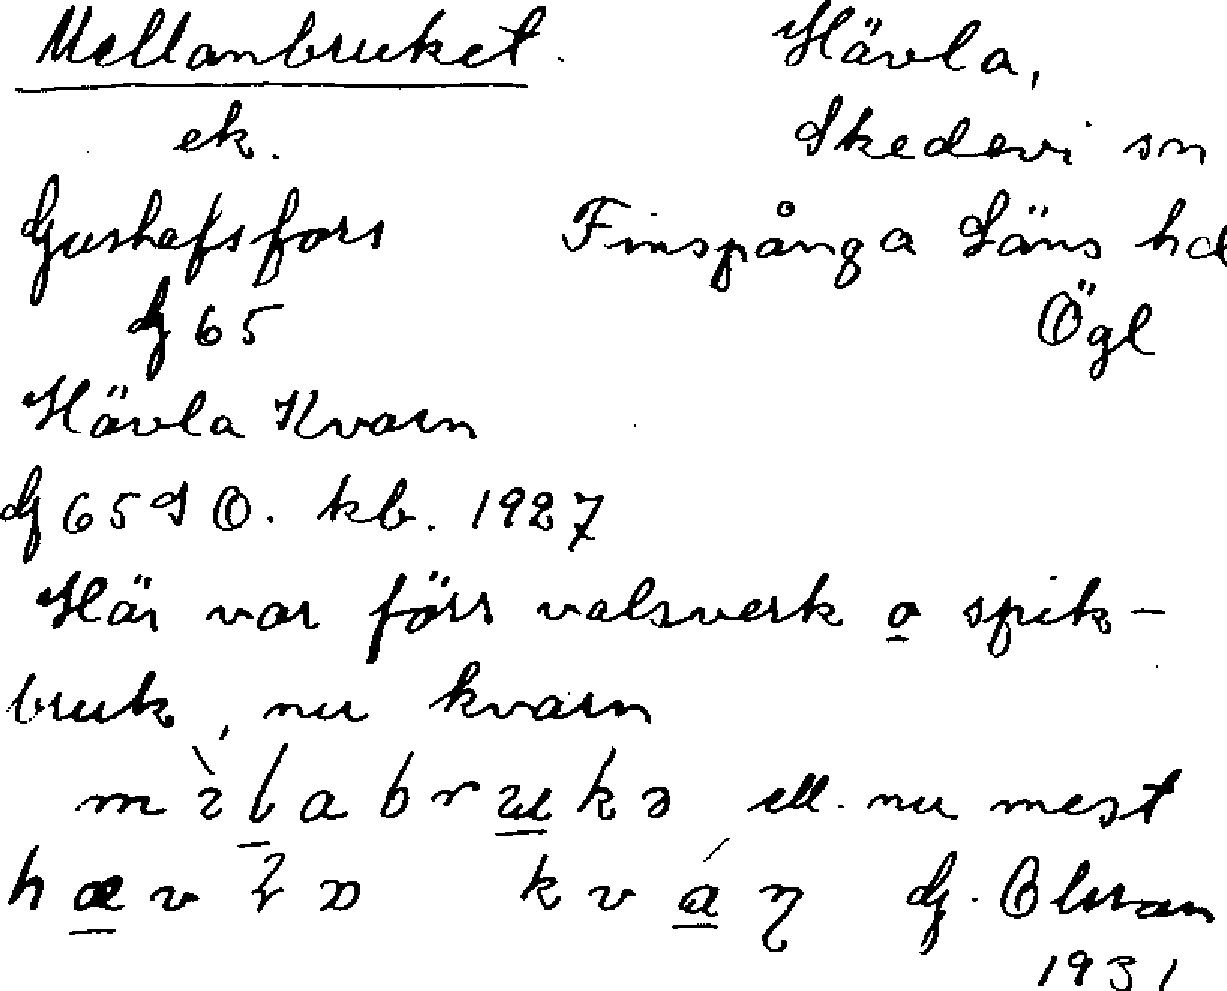 Mellanbruket. Hävla,
ek. Skedevi sn
Gustafsfors Finspånga Läns hd
G 65 Ögl
Hävla Kvarn
G 65 SO. kb. 1927
Här var förr valsverk o spik-
bruk, nu kvarn
ell. nu mest
G. Olsson
1931